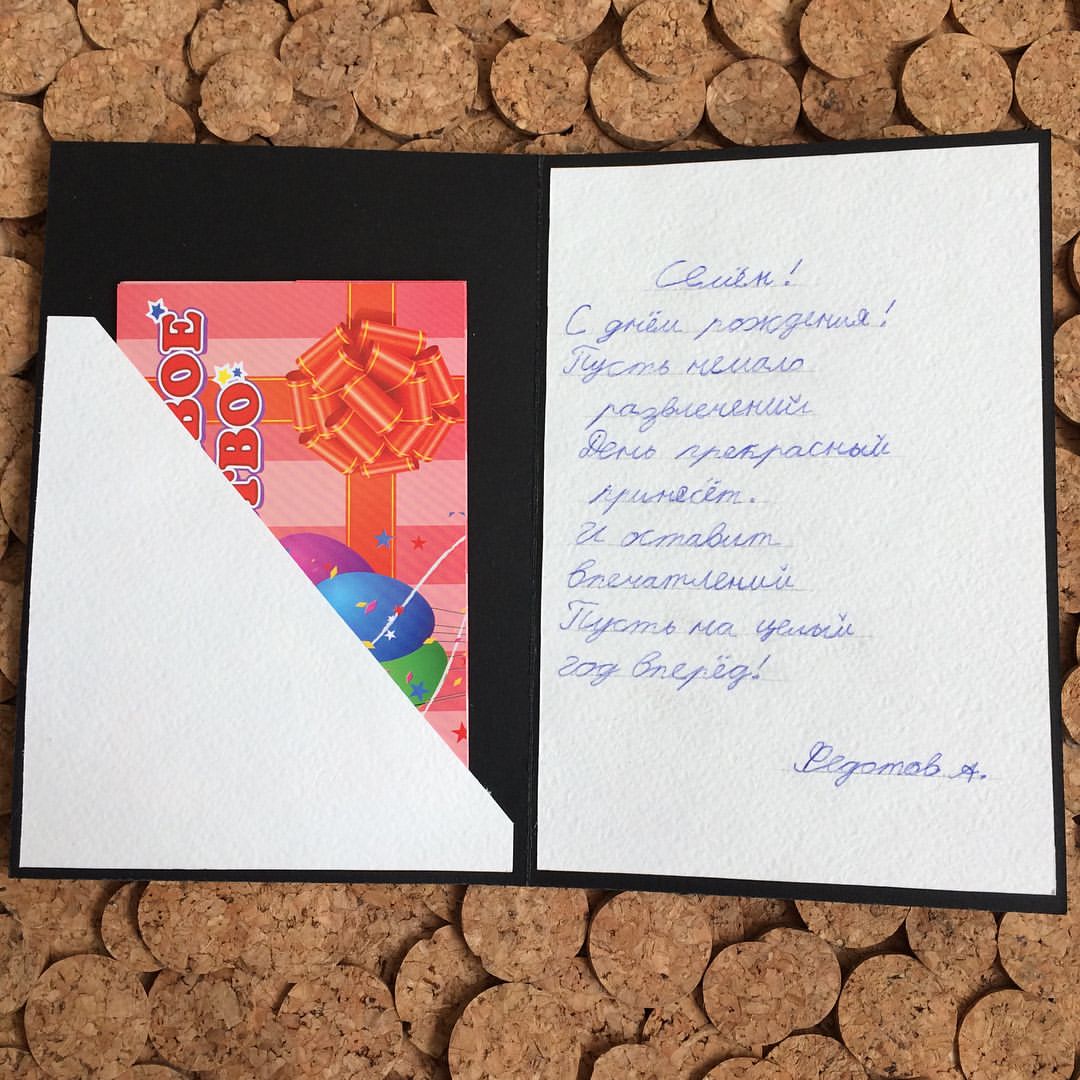 ВОЕ
ТВО
Семён!
С днём рождения!
Пусть немало
развлечений
День прекрасный
принесёт.
И оставит
впечатлений
Пусть на целый
год вперёд!
Федотов А.